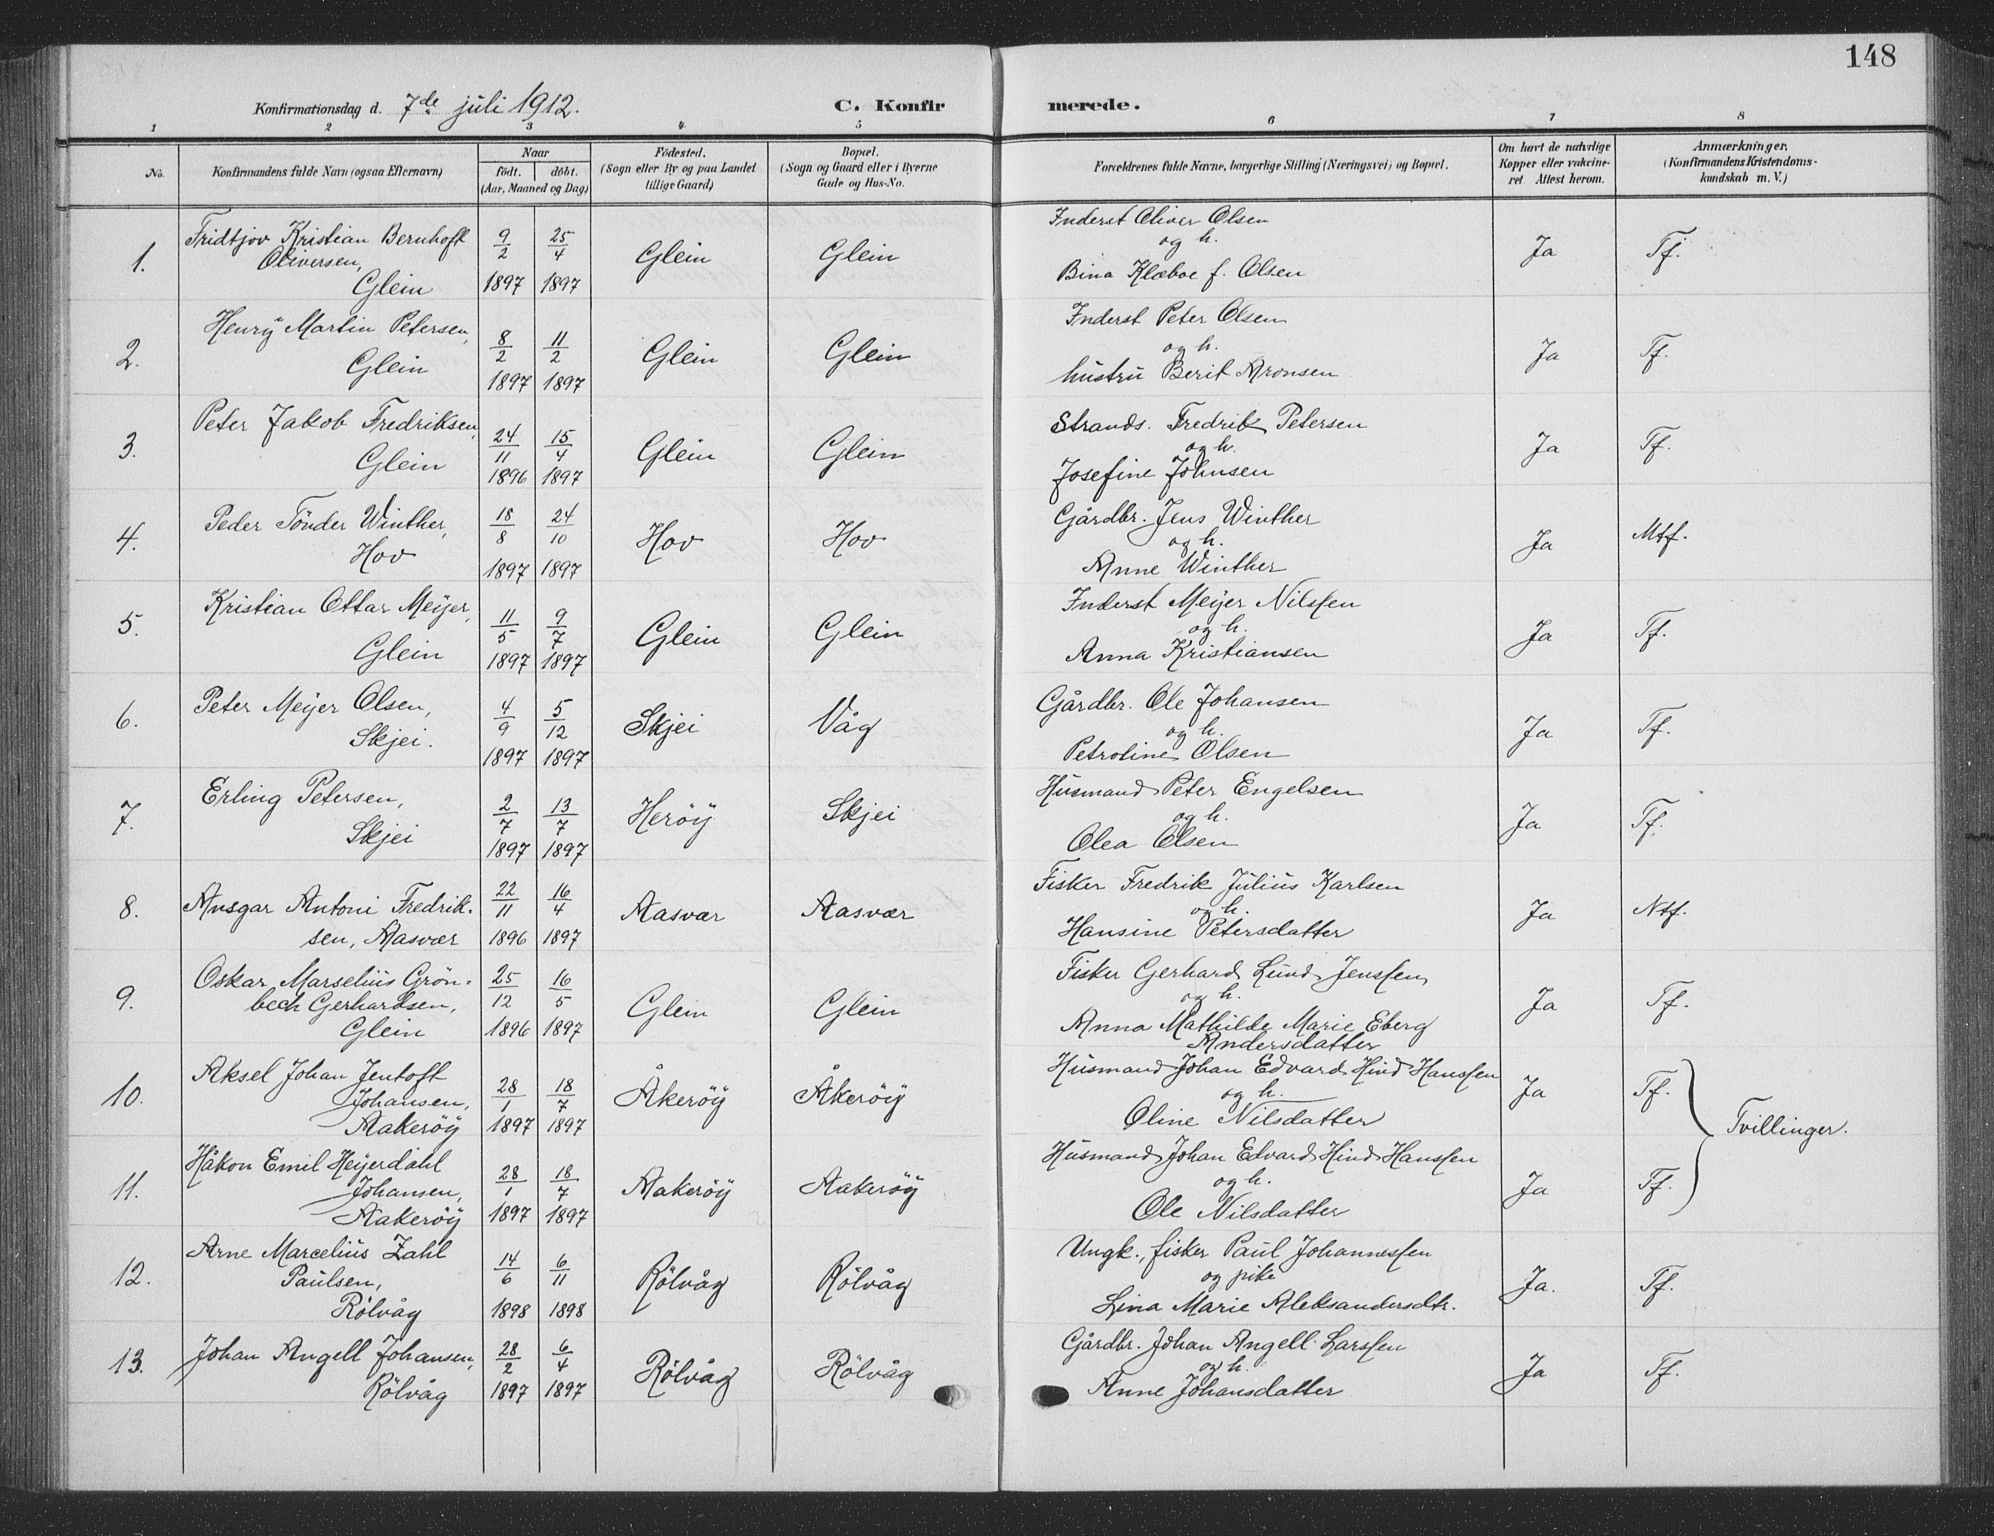 148
Konfirmationsdag d. 7de juli 1912.
C. Konfirmerede.
1 2 3 4 5 6 7 8
No.
Konfirmandens fulde Navn (ogsaa Efternavn)
Naar
födt. döbt.
(Aar, Maaned og Dag)
Födested.
(Sogn eller By og paa Landet
tillige Gaard)
Bopæl.
(Sogn og Gaard eller i Byerne
Gade og Hus-No.
Forældrenes fulde Navne, borgerlige Stilling (Næringsvei) og Bopæl.
Om havt de naturlige
Kopper eller vakcine-
ret Attest herom.
Anmærkninger.
(Konfirmandens Kristendoms-
kundskab m. V.)
1.
Fridtjov Kristian Bernhoft
Oliversen,
Glein
9/2 1897
25/4 1897
Glein
Glein
Inderst Oliver Olsen
og h.
Bina Klæboe f. Olsen
Ja
Tf.
2.
Henry Martin Petersen,
Glein
8/2 1897
11/2 1897
Glein
Glein
Inderst Peter Olsen
og h.
hustru Berit Aronsen
Ja
Tf.
3.
Peter Jakob Fredriksen,
Glein
24/11 1896
15/4 1897
Glein
Glein
Strands. Fredrik Petersen
og h.
Josefine Johnsen
Ja
Tf.
4.
Peder Tönder Winther,
Hov
18/8 1897
24/10 1897
Hov
Hov
Gårdbr. Jens Winther
og h.
Anne Winther
Ja
Mtf.
5.
Kristian Ottar Meyer,
Glein
11/5 1897
9/7 1897
Glein
Glein
Inderst Meyer Nilssen
og h.
Anna Kristiansen
Ja
Tf.
6.
Peter Meyer Olsen,
Skjei.
4/9 1897
5/12 1897
Skjei
Våg
Gårdbr. Ole Johansen
og h.
Petroline Olsen
Ja
Tf.
7.
Erling Petersen,
Skjei
2/7 1897
13/7 1897
Heröy
Skjei
Husmand Peter Engelsen
og h.
Olea Olsen
Ja
Tf.
8.
Ansgar Antoni Fredrik-
sen, Aasvær
22/11 1896
16/4 1897
Aasvær
Aasvær
Fisker Fredrik Julius Karlsen
og h.
Hansine Petersdatter
Ja
Ntf.
9.
Oskar Marselius Grön-
bech Gerhardsen,
Glein
25/12 1896
16/5 1897
Glein
Glein
Fisker Gerhard Lund Jenssen
og h.
Anna Mathilde Marie Eberg
Andersdatter
Ja
Tf.
10.
Aksel Johan Jentoft
Johansen,
Aakeröy
28/1 1897
18/7 1897
Åkeröy
Åkeröy
Husmand Johan Edvard Hind Hanssen
og h.
Oline Nilsdatter
Ja
Tf.
Tvillinger.
11.
Håkon Emil Heyerdahl
Johansen,
Aakeröy
28/1 1897
18/7 1897
Aakeröy
Aakeröy
Husmand Johan Edvard Hind Hanssen
og h.
Ole Nilsdatter
Ja
Tf.
12.
Arne Marcelius Zahl
Paulsen,
Rölvåg
14/6 1898
6/11 1898
Rölvåg
Rölvåg
Ungk., fisker Paul Johannessen
og pike
Lina Marie Aleksandersdtr.
Ja.
Tf.
13.
Johan Angell Johansen,
Rölvåg
28/2 1897
6/4 1897
Rölvåg
Rölvåg
Gårdbr. Johan Angell Larssen
og h.
Anne Johansdatter
Ja
Tf.